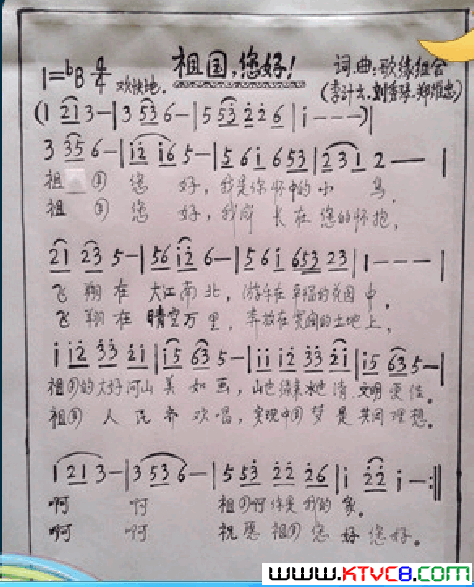 祖国,您好!
1=♭B 4/4 欢快地. 词.曲:歌缘组合
(1 21 3-|3 53 6-|5 53 22 6|i---)|
3 35 6-|i2 i6 5-|5 6 i 6 53|23 1 2--|
祖 您 好,我是你怀中的小 鸟,
祖 您 好,我成 长 在 您的怀抱,
21 23 5-|56 i2 6-|56 i 653 23|1---|
飞 翔 在 大江南北, 在 的花园中,
飞 翔 在 晴空万里, 奔放在宽阔的土地上,
i i2 33 2i|i5 63 5-|ii i2 33 2i|i5 63 5-|
祖 的大好河山 美 如 画,山 水 清 文明
祖 人 民 齐 欢 唱,实现中国 梦 是 共同 理想。
1 21 3-|3 53 6-|5 53 22 26|i 22 i-:||
啊 啊 祖 啊你是 我的 家。
啊 啊 祝 愿 祖 您 好 您好。
www.KTVC8.com